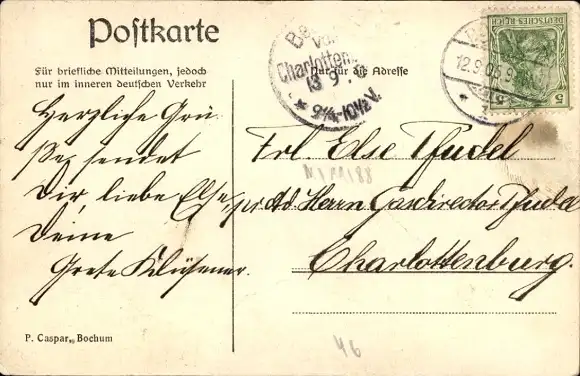 Postkarte
Für briefliche Mitteilungen, jedoch
nur im inneren deutschen Verkehr
Nur für die Adresse
Charlotten
13 9
9¼-10½V.
12.9.05.9
DEUTSCHES REICH
5 5
Herzliche Grü
ße, sendet
Dir, liebe Else,
Deine
Grete Klüsener.
Frl. Else Thudel
pr. Ad. Herrn Gasdirector Thudel
Charlottenburg.
P. Caspar, Bochum
46